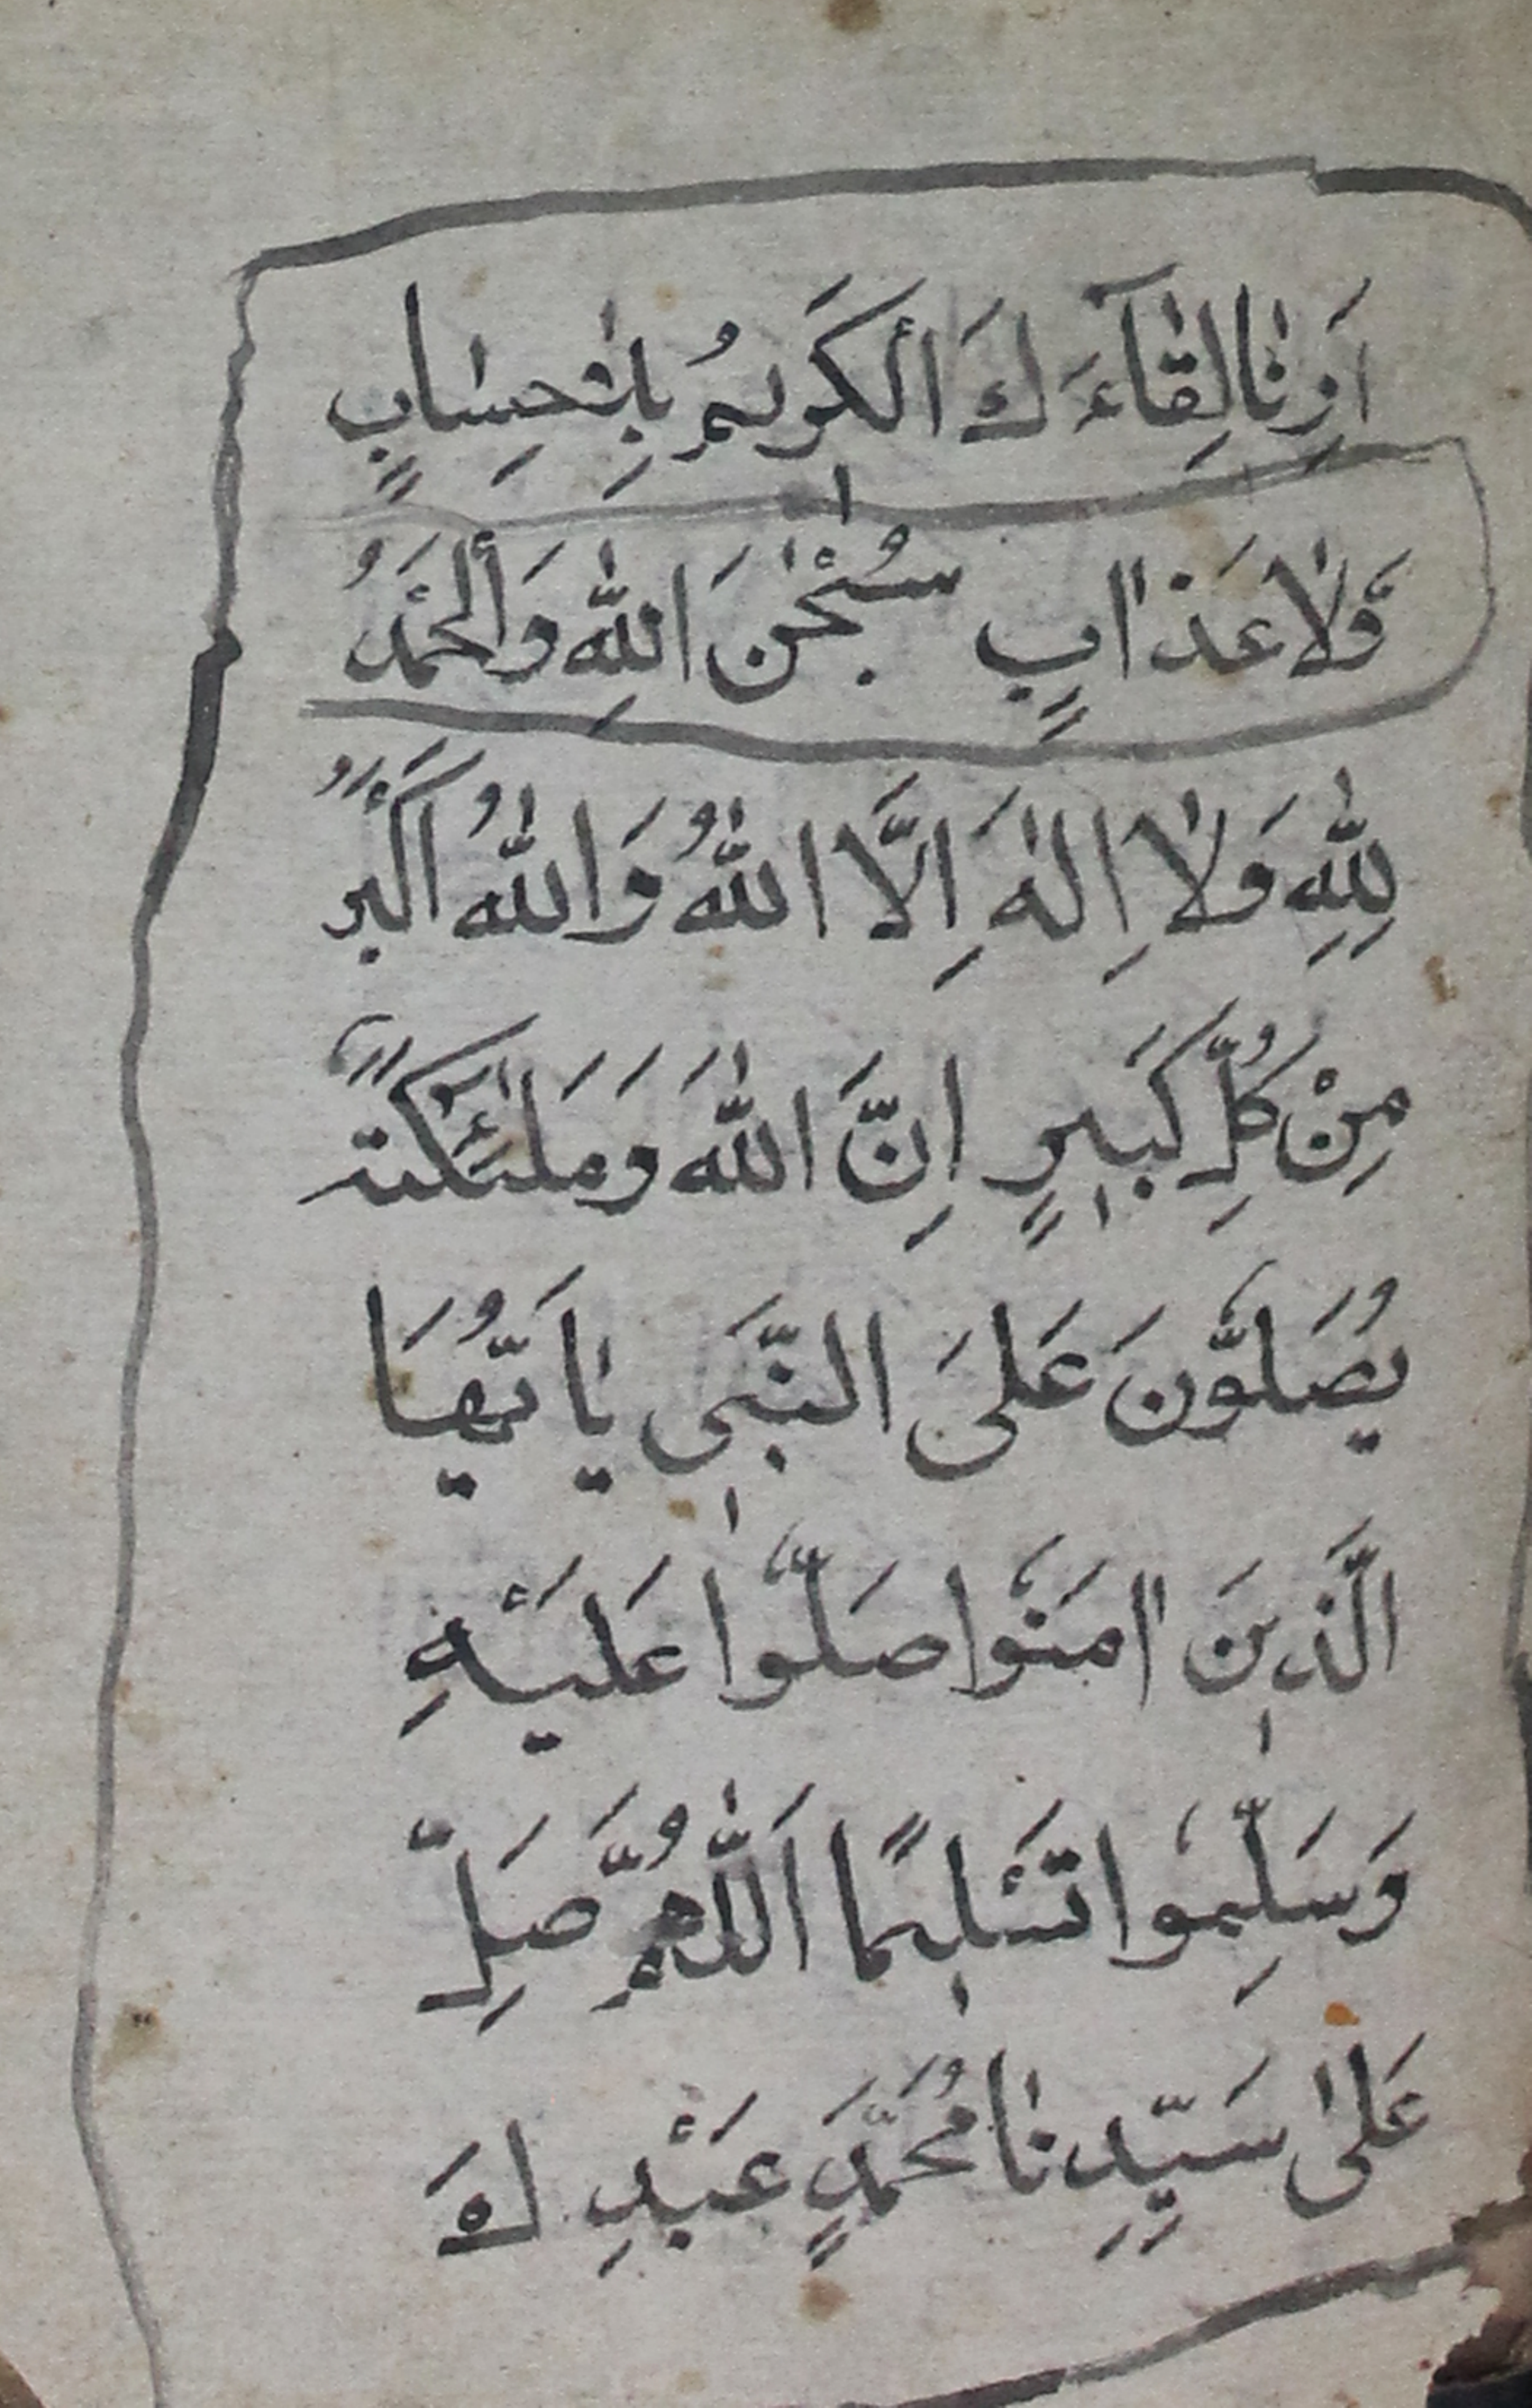 اَرِنَا لِقَآءَكَ الْكَرِيمُ بِلٰاحِسَابٍ
وَّلَا عَذَابٍ سُبْحٰنَ اللّٰهِ وَالْحَمْدُ
لِلّٰهِ وَلَا اِلٰهَ اِلَّا اللّٰهُ وَاللّٰهُ اَكْبَرُ
مِنْ كُلِّ كَبِيرٍ اِنَّ اللّٰهَ وَمَلٰئِكَتَهٗ
يُصَلُّونَ عَلَى النَّبِى يٰاَيُّهَا
الَّذِينَ اٰمَنُوا صَلُّوا عَلَيْهِ
وَسَلِّمُوا تَسْلِيمًا اَللّٰهُمَّ صَلِّ
عَلٰى سَيِّدِنَا مُحَمَّدٍ عَبْدِكَ